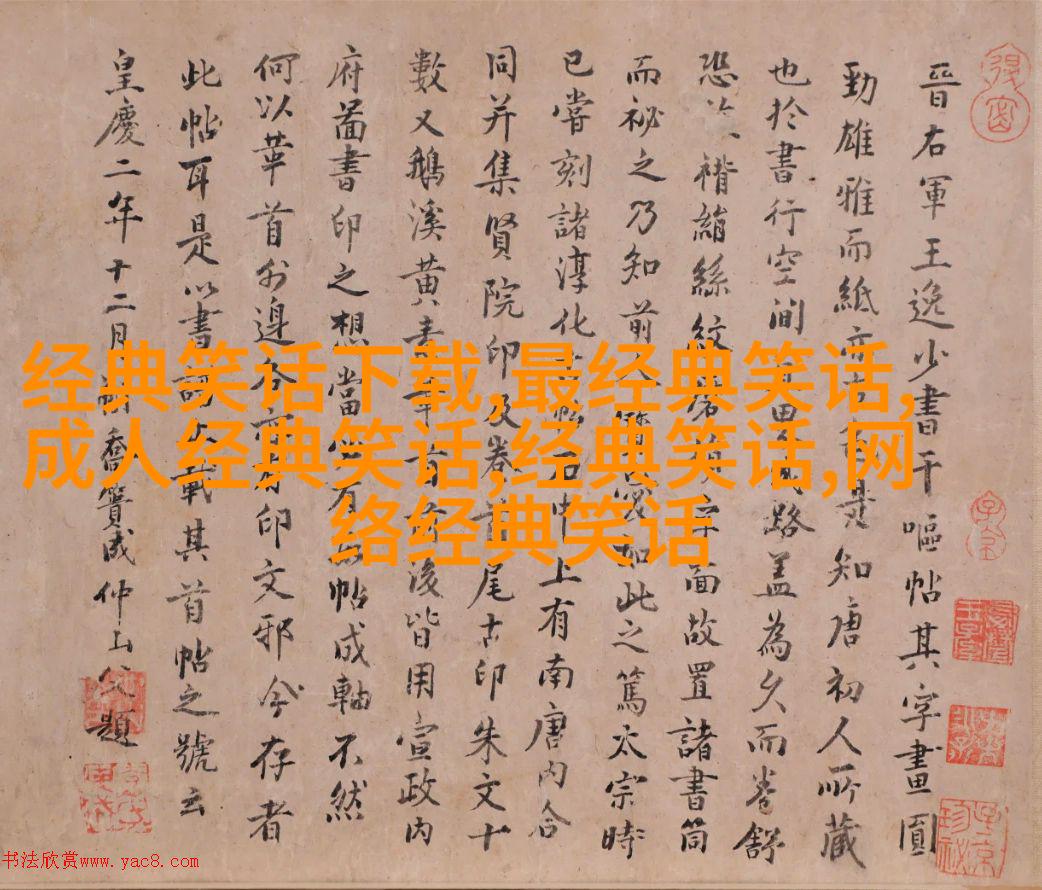 晉右軍王逸少書干嘔帖其字畫圓
勁雄雅而紙是知唐初人所藏
也於書行空間路蓋為久而卷舒
恐褙絹絲紋字面故置諸書筒
而祕之乃知前人如此之篤太宗時
已嘗刻諸淳化中上有南唐內合
同并集賢院印及卷首尾古印朱文十
數又鵝溪黃素首前後皆用宣政內
府啚書印之想當有帖成軸不然
何以華首外邊各印文邪今存者
此帖耳是以書載其首帖之號云
皇慶二年十二月朔喬簣成仲山父題
经典笑话下载,最经典笑话,
成人经典笑话,经典笑话,网
络经典笑话
书法欣赏www.yac8.com